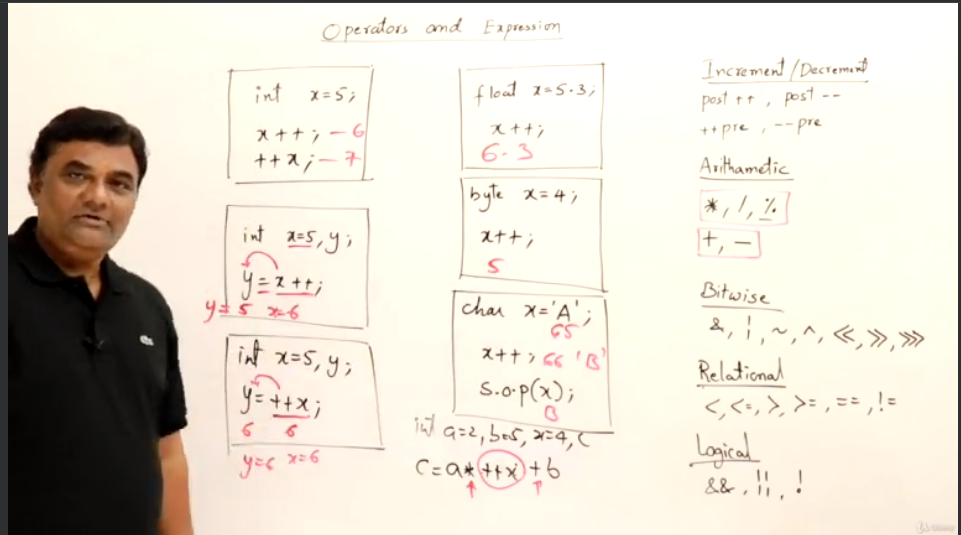 Operators and Expression
int x=5;
x++; - 6
++x; - 7
int x=5, y;
y = x++;
y= 5 x=6
int x=5, y;
y= ++x;
6 6
y=6 x=6
float x=5.3;
x++;
6.3
byte x=4;
x++;
5
char x='A';
65
x++; 66 'B'
S.o.p(x);
B
int a=2, b=5, x=4, c
c=a* ++x +b
Increment/Decrement
post ++, post --
++pre, --pre
Arithametic
*, /, %
+, -
Bitwise
&, ¦, ~, ^, <<, >>, >>>
Relational
<, <=, >, >=, ==, !=
Logical
&&, ¦¦, !